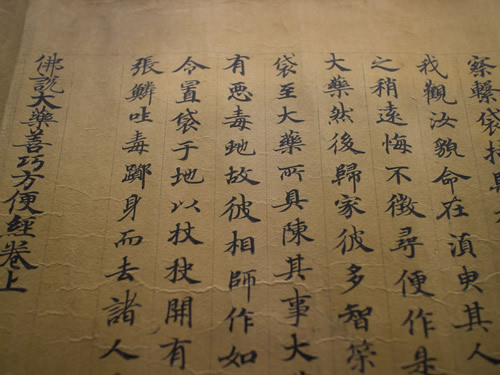 察繫袋持歸
我觀汝貌命在湏臾其人
之稍遠悔不徵尋便作是
大藥然後歸家彼多智
袋至大藥所具陳其事大
有悪毒虵故彼相師作如
令置袋于地以杖抉開有
張鱗吐毒躑身而去諸人
佛說大藥善巧方便經卷上